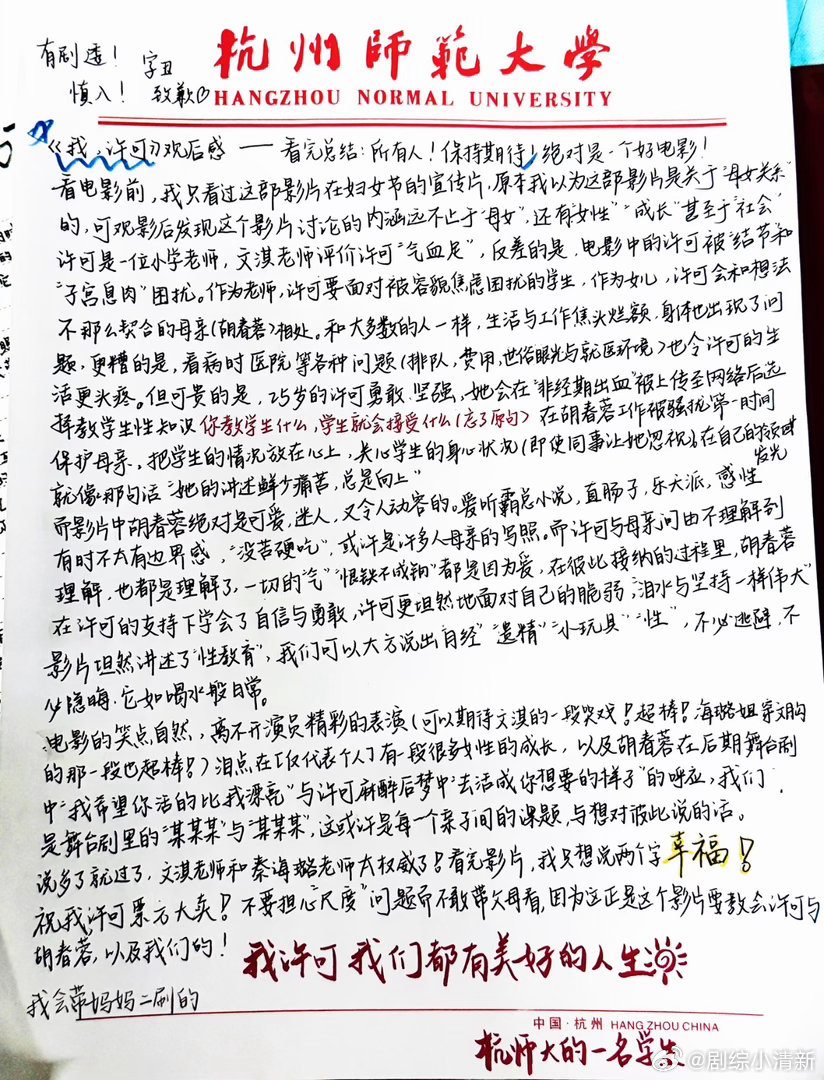 有剧透！
慎入！
字丑
致歉
杭州師範大學
HANGZHOU NORMAL UNIVERSITY
《我，许可》观后感 — 看完总结：所有人！保持期待！绝对是一个好电影！
看电影前，我只看过这部影片在妇女节的宣传片，原本我以为这部影片是关于“母女关系”
的，可观影后发现这个影片讨论的内涵远不止于“母女”，还有“女性”“成长”甚至于“社会”
许可是一位小学老师，文淇老师评价许可“气血足”，反差的是，电影中的许可被“结节和
“子宫息肉”困扰。作为老师，许可要面对被容貌焦虑困扰的学生，作为女儿，许可会和想法
不那么契合的母亲（胡春蓉）相处。和大多数的人一样，生活与工作焦头烂额，身体也出现了问
题，更糟的是，看病时医院等各种问题（排队，费用，世俗眼光与就医环境）也令许可的生
活更头疼。但可贵的是，25岁的许可勇敢、坚强，她会在“非经期出血”被上传至网络后选
择教学生性知识 你教学生什么，学生就会接受什么（忘了原句） 在胡春蓉工作被骚扰第一时间
保护母亲，把学生的情况放在心上，关心学生的身心状况（即使同事让她忽视）在自己的领域
发光
就像那句话“她的讲述鲜少痛苦，总是向上”
而影片中胡春蓉绝对是可爱，迷人，又令人动容的。爱听霸总小说，直肠子，乐天派，感性
有时不太有边界感，“没苦硬吃”，或许是许多人母亲的写照。而许可与母亲间由不理解到
理解，也都是理解了，一切的“气”“恨铁不成钢”都是因为爱，在彼此接纳的过程里，胡春蓉
在许可的支持下学会了自信与勇敢，许可更坦然地面对自己的脆弱，“泪水与坚持一样伟大”
影片坦然讲述了“性教育”，我们可以大方说出“月经”“遗精”“小玩具”“性”，不必逃避，不
必隐晦，它如喝水般日常。
电影的笑点自然，离不开演员精彩的表演（可以期待文淇的一段哭戏！超棒！海璐姐
的那一段也超棒！）泪点在[仅代表个人]有一段很多女性的成长，以及胡春蓉在后期舞台剧
中“我希望你活的比我漂亮”与许可麻醉后梦中“去活成你想要的样子”的呼应，我们
是舞台剧里的“某某某”与“某某某”，这或许是每一个亲子间的课题，与想对彼此说的话。
说多了就过了，文淇老师和秦海璐老师太权威了！看完影片，我只想说两个字 幸福！
祝我许可票房大卖！不要担心“尺度”问题而不敢带父母看，因为这正是这个影片要教会许可与
胡春蓉，以及我们的！
我许可 我们都有美好的人生
我会带妈妈二刷的
中国·杭州 HANG ZHOU CHINA
杭师大的一名学生
@剧综小清新